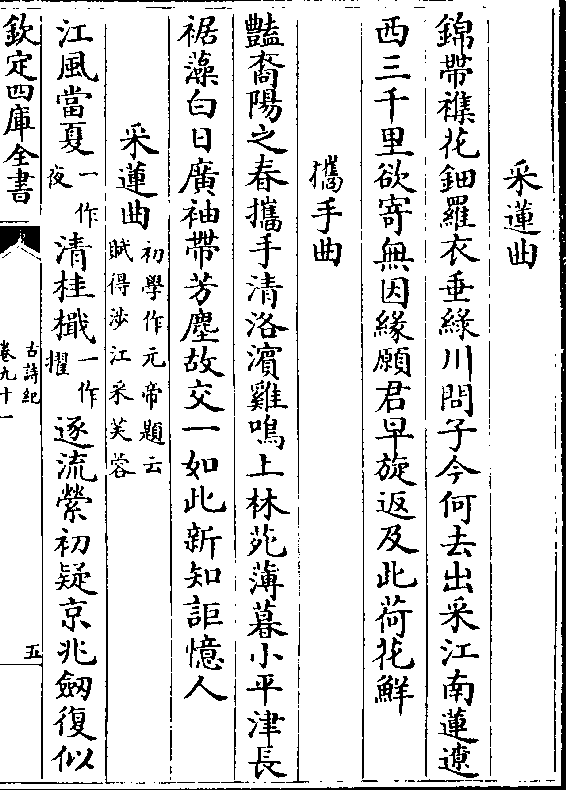 采蓮曲
錦帶襍花鈿羅衣垂綠川問子今何去出采江南蓮遼
西三千里欲寄無因緣願君早旋返及此荷花鮮
攜手曲
豔裔陽之春攜手清洛濱雞鳴上林苑薄暮小平津長
裾藻白日廣袖帶芳塵故交一如此新知詎憶人
采蓮曲初學作元帝題云賦得涉江采芙蓉
江風當夏一作夜清桂檝一作擢逐流縈初疑京兆劒復似
欽定四庫全書
古詩紀
卷九十一
五